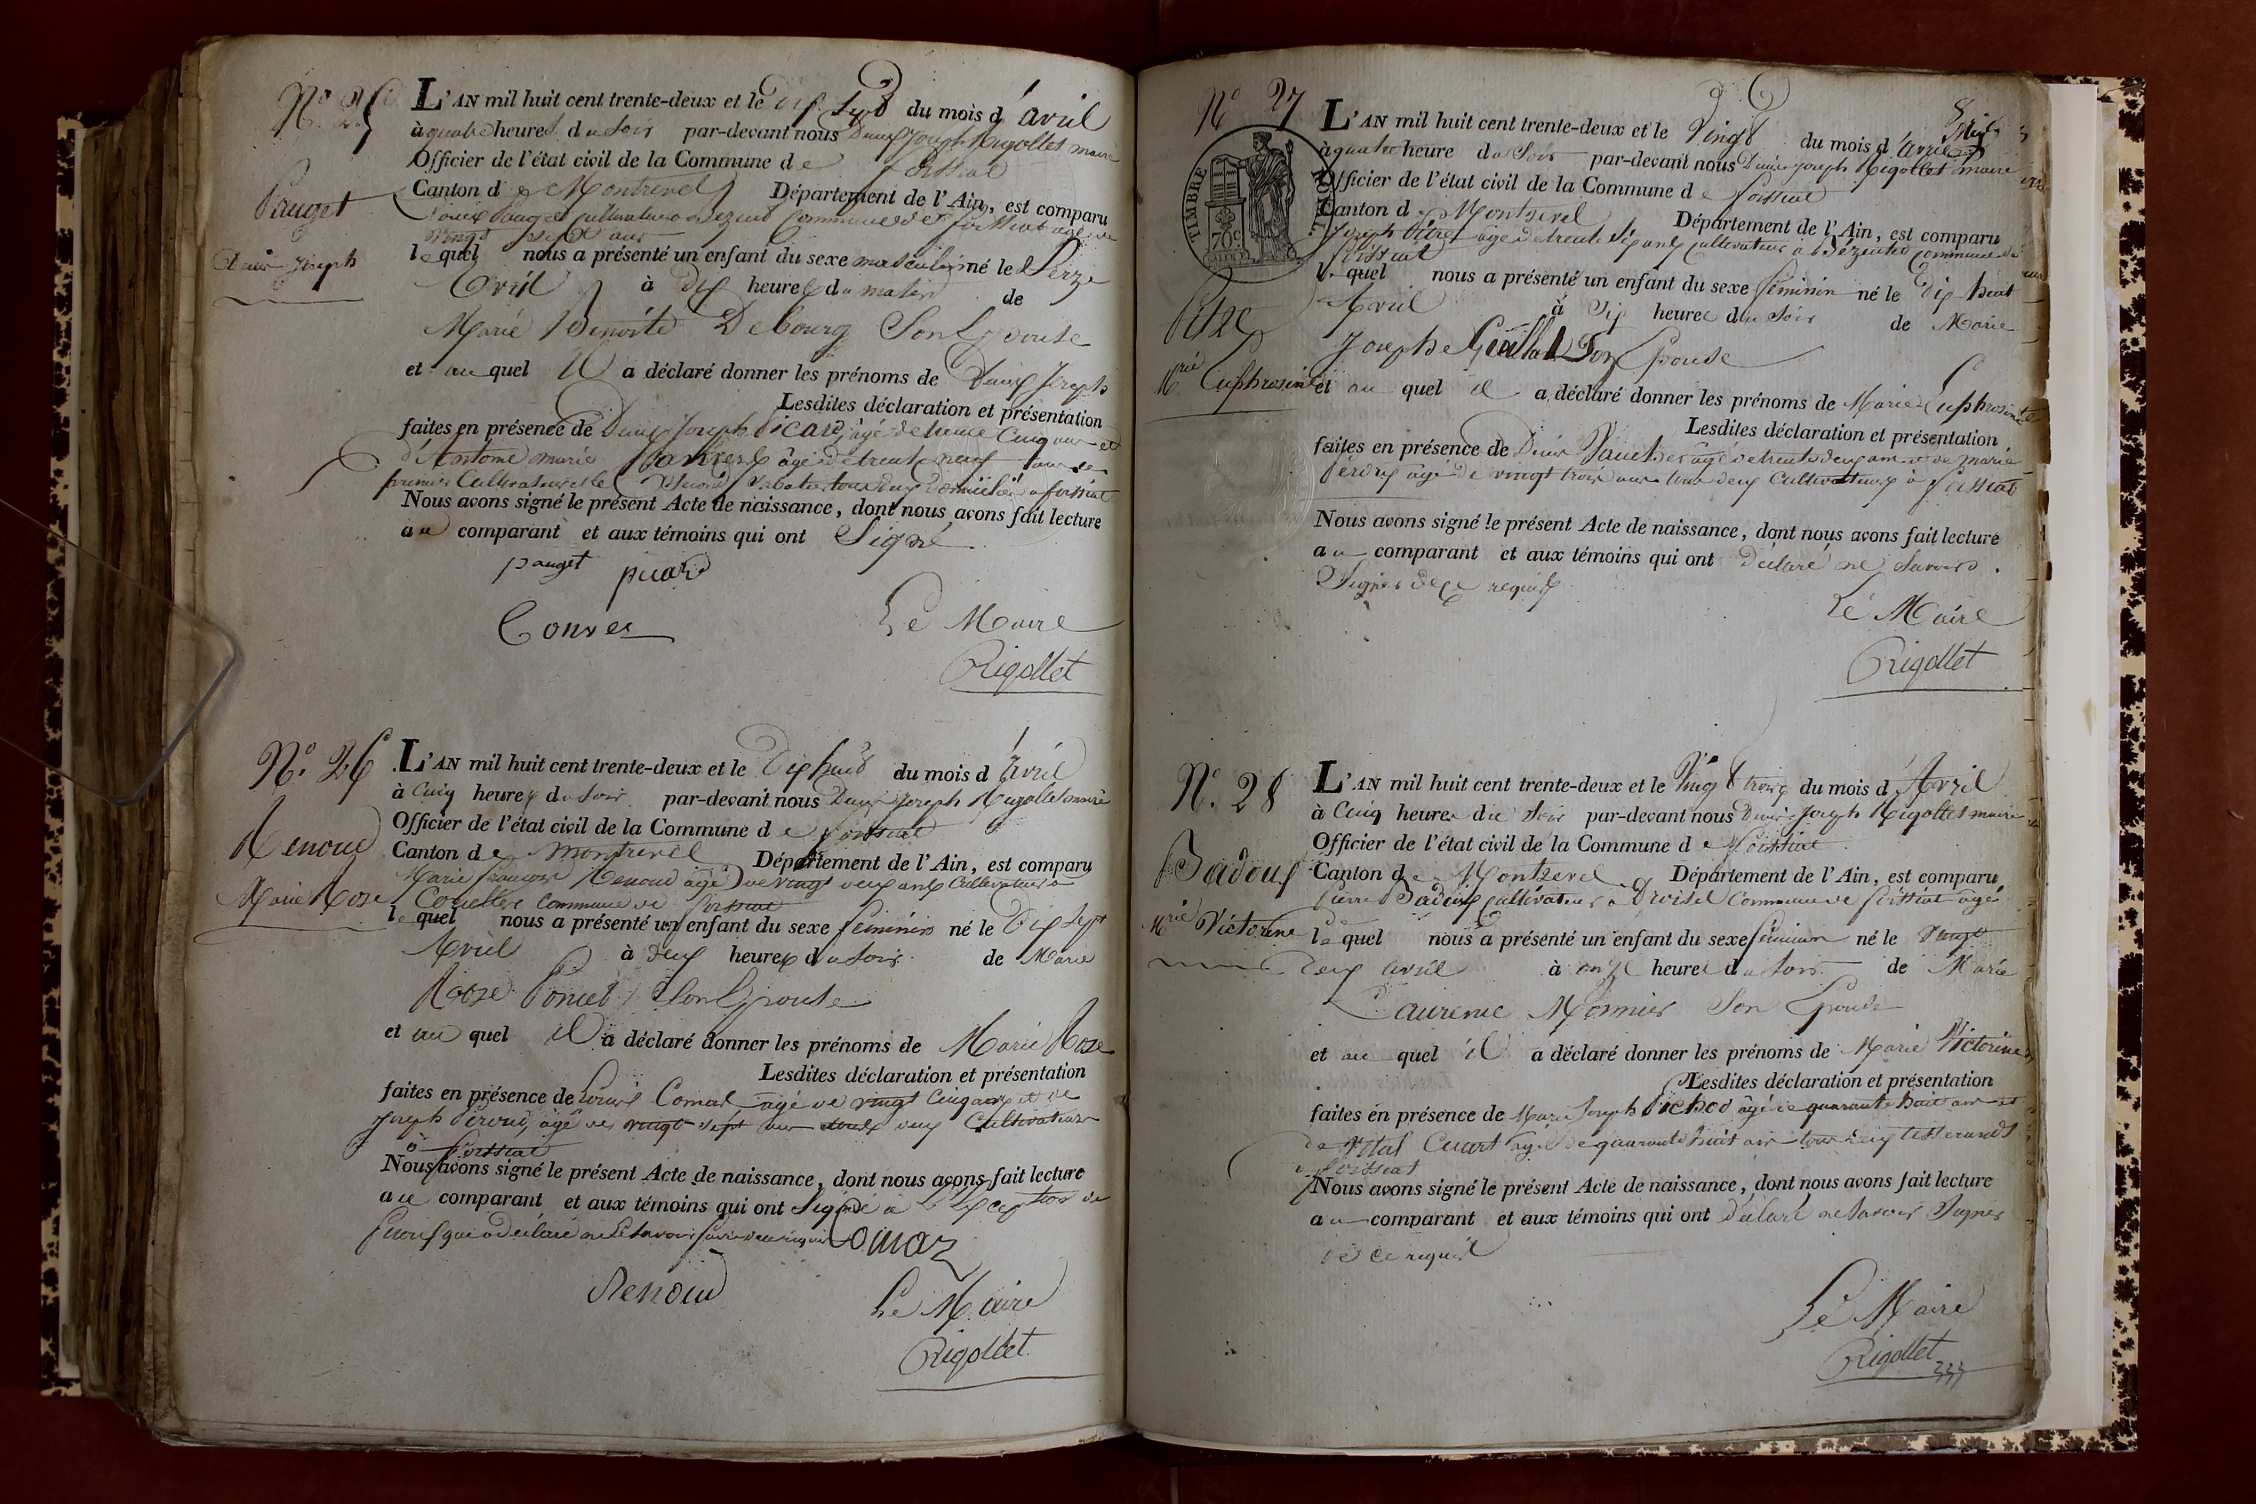 N° 25
L'AN mil huit cent trente-deux et le dix sept du mois d'avril
à quatre heures du soir par-devant nous Denis Joseph Rigollet maire
Officier de l'état civil de la Commune de foissiat
Pauget
Canton de Montrevel Département de l'Ain, est comparu
Pauget cultivateur commune de foissiat âgé de
vingt sept ans
Denis Joseph
lequel nous a présenté un enfant du sexe masculin né le
Avril à dix heures du matin de
Marie Benoite Debourg Son Epouse
et auquel il a déclaré donner les prénoms de Denis Joseph
Lesdites déclaration et présentation
faites en présence de Denis Joseph Picard, âgé de trente cinq ans et
d'Antoine marie Convers âgé de trente neuf ans le
premier Cultivateur et le Second Sabotier tous deux domiciliés à foissiat
Nous avons signé le présent Acte de naissance, dont nous avons fait lecture
au comparant et aux témoins qui ont Signé
pauget picard
Conver
Le Maire
Rigollet
N° 26
L'AN mil huit cent trente-deux et le Dix huit du mois d'Avril
à Cinq heures du Soir par-devant nous Denis Joseph Rigollet maire
Officier de l'état civil de la Commune de foissiat
Renoud
Canton de montrevel Département de l'Ain, est comparu
Marie François Renoud âgé de vingt deux ans Cultivateur à
Marie Rose
commune de foissiat
lequel nous a présenté un enfant du sexe féminin né le Dix Sept
Avril à deux heures du Soir de Marie
Roze Poncet Son Epouse
et auquel il a déclaré donner les prénoms de Marie Roze
Lesdites déclaration et présentation
faites en présence de Louis Comas âgé de vingt cinq ans et de
Joseph âgé de vingt sept ans tous deux Cultivateurs
à foissiat
Nous avons signé le présent Acte de naissance, dont nous avons fait lecture
au comparant et aux témoins qui ont Signé à l'Exception de
qui a déclaré ne le savoir
Comaz
Renoud
Le Maire
Rigollet
N° 27
L'AN mil huit cent trente-deux et le Vingt du mois d'avril
à quatre heure du Soir par-devant nous Denis Joseph Rigollet maire
Officier de l'état civil de la Commune de foissiat
TIMBRE ROYAL
70 c
Canton de Montrevel Département de l'Ain, est comparu
Joseph Pitre âgé de trente six ans cultivateur à commune de
foissiat
lequel nous a présenté un enfant du sexe féminin né le dix huit
Pitre
Avril à Six heures du Soir de Marie
Josephe Son Epouse
Mrie Euphrosine
et au quel il a déclaré donner les prénoms de Marie Euphrosine
Lesdites déclaration et présentation
faites en présence de Denis âgé de trente deux ans et de marie
Perdrix âgé de vingt trois ans tous deux Cultivateurs à foissiat
Nous avons signé le présent Acte de naissance, dont nous avons fait lecture
au comparant et aux témoins qui ont déclaré ne Savoir
Signer de ce requis
Le Maire
Rigollet
N° 28
L'AN mil huit cent trente-deux et le Vingt trois du mois d'Avril
à Cinq heures du Soir par-devant nous Denis Joseph Rigollet maire
Officier de l'état civil de la Commune de foissiat
Badoux
Canton de Montrevel Département de l'Ain, est comparu
Pierre Badoux cultivateur à commune de foissiat âgé
Mrie Victorine
lequel nous a présenté un enfant du sexe féminin né le Vingt
deux avril à onze heures du Soir de Marie
Laurence Monnier Son Epouse
et au quel il a déclaré donner les prénoms de Marie Victorine
Lesdites déclaration et présentation
faites en présence de Marie Joseph Pichod âgé de quarante huit ans et
de Vital Cuart âgé de quarante huit ans tous deux tisserands
à foissiat
Nous avons signé le présent Acte de naissance, dont nous avons fait lecture
au comparant et aux témoins qui ont déclaré ne Savoir Signer
de ce requis
Le Maire
Rigollet